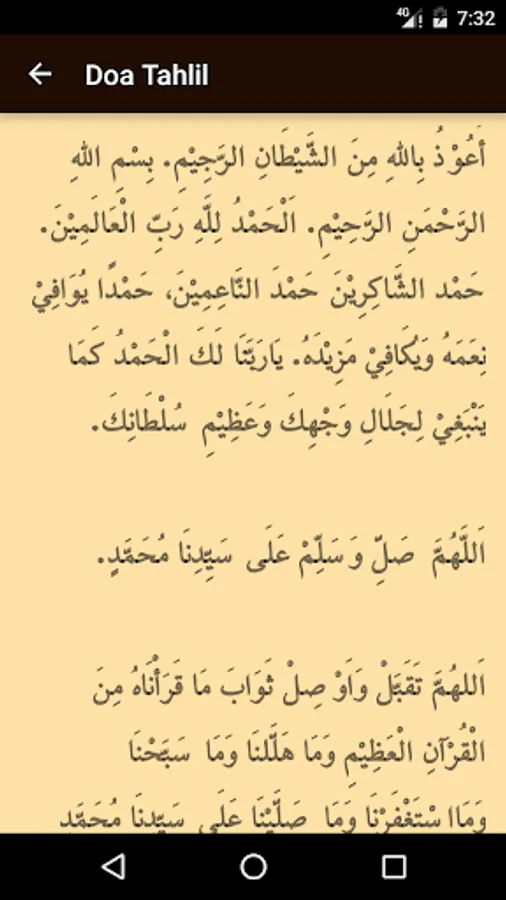 4G 7:32
Doa Tahlil
أَعُوْذُ بِاللهِ مِنَ الشَّيْطَانِ الرَّجِيْمِ. بِسْمِ اللهِ
الرَّحْمَنِ الرَّحِيْمِ. اَلْحَمْدُ لِلَّهِ رَبِّ الْعَالَمِيْنَ.
حَمْد الشَّاكِرِيْنَ حَمْدَ النَّاعِمِيْنَ، حَمْدًا يُوَافِيْ
نِعَمَهُ وَيُكَافِيْ مَزِيْدَهُ. يَارَبَّنَا لَكَ الْحَمْدُ كَمَا
يَنْبَغِيْ لِجَلَالِ وَجْهِكَ وَعَظِيْمِ سُلْطَانِكَ.
اَللَّهُمَّ صَلِّ وَسَلِّمْ عَلَى سَيِّدِنَا مُحَمَّدٍ.
اَللهُمَّ تَقَبَّلْ وَاَوْ صِلْ ثَوَابَ مَا قَرَأْنَاهُ مِنَ
الْقُرْآنِ الْعَظِيْمِ وَمَا هَلَّلنَا وَمَا سَبَّحْنَا
وَمَاا سْتَغْفَرْنَا وَمَا صَلَّيْنَا عَلَى سَيِّدِنَا مُحَمَّد